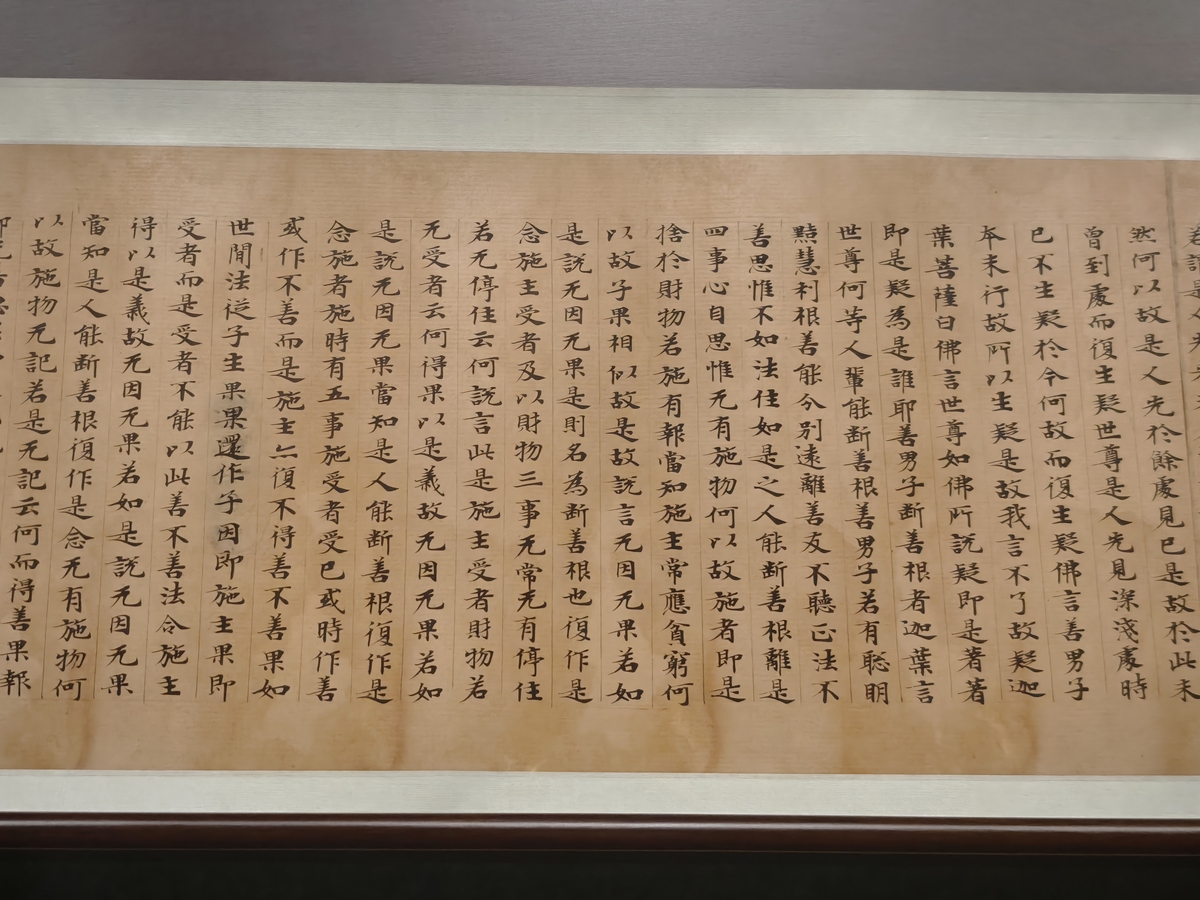 然何以故是人先於餘處見已是故於此未
曾到處而復生疑世尊是人先見深淺處時
已不生疑於今何故而復生疑佛言善男子
本未行故所以生疑是故我言不了故疑迦
葉菩薩白佛言世尊如佛所說疑即是著著
即是疑為是誰耶善男子斷善根者迦葉言
世尊何等人輩能斷善根善男子若有聡明
黠慧利根善能分別遠離善友不聽正法不
善思惟不如法住如是之人能斷善根離是
四事心自思惟无有施物何以故施者即是
捨於財物若施有報當知施主常應貧窮何
以故子果相似故是故說言无因无果若如
是說无因无果是則名為斷善根也復作是
念施主受者及以財物三事无常无有停住
若无停住云何說言此是施主受者財物若
无受者云何得果以是義故无因无果若如
是說无因无果當知是人能斷善根復作是
念施者施時有五事施受者受已或時作善
或作不善而是施主亦復不得善不善果如
世間法從子生果果還作子因即施主果即
受者而是受者不能以此善不善法令施主
得以是義故无因无果若如是說无因无果
當知是人能斷善根復作是念无有施物何
以故施物无記若是无記云何而得善果報